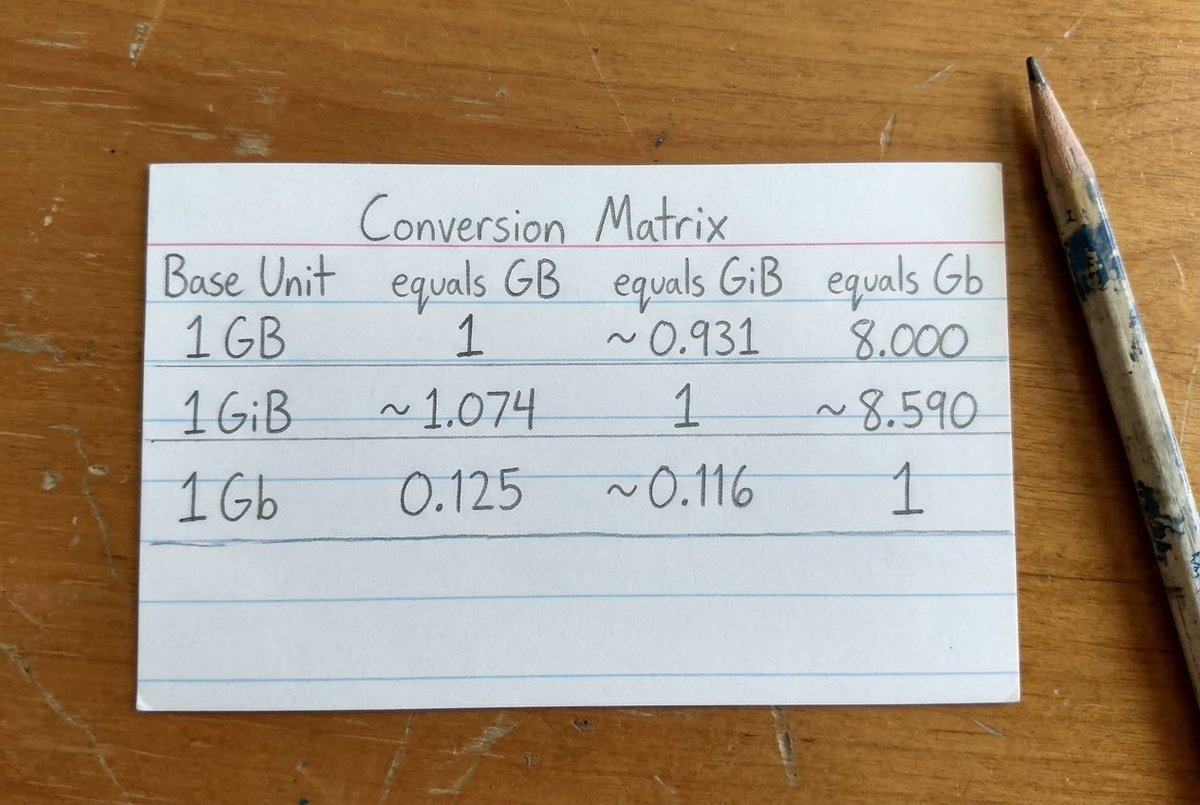 Conversion Matrix
Base Unit equals GB equals GiB equals Gb
1 GB 1 ~0.931 8.000
1 GiB ~1.074 1 ~8.590
1 Gb 0.125 ~0.116 1